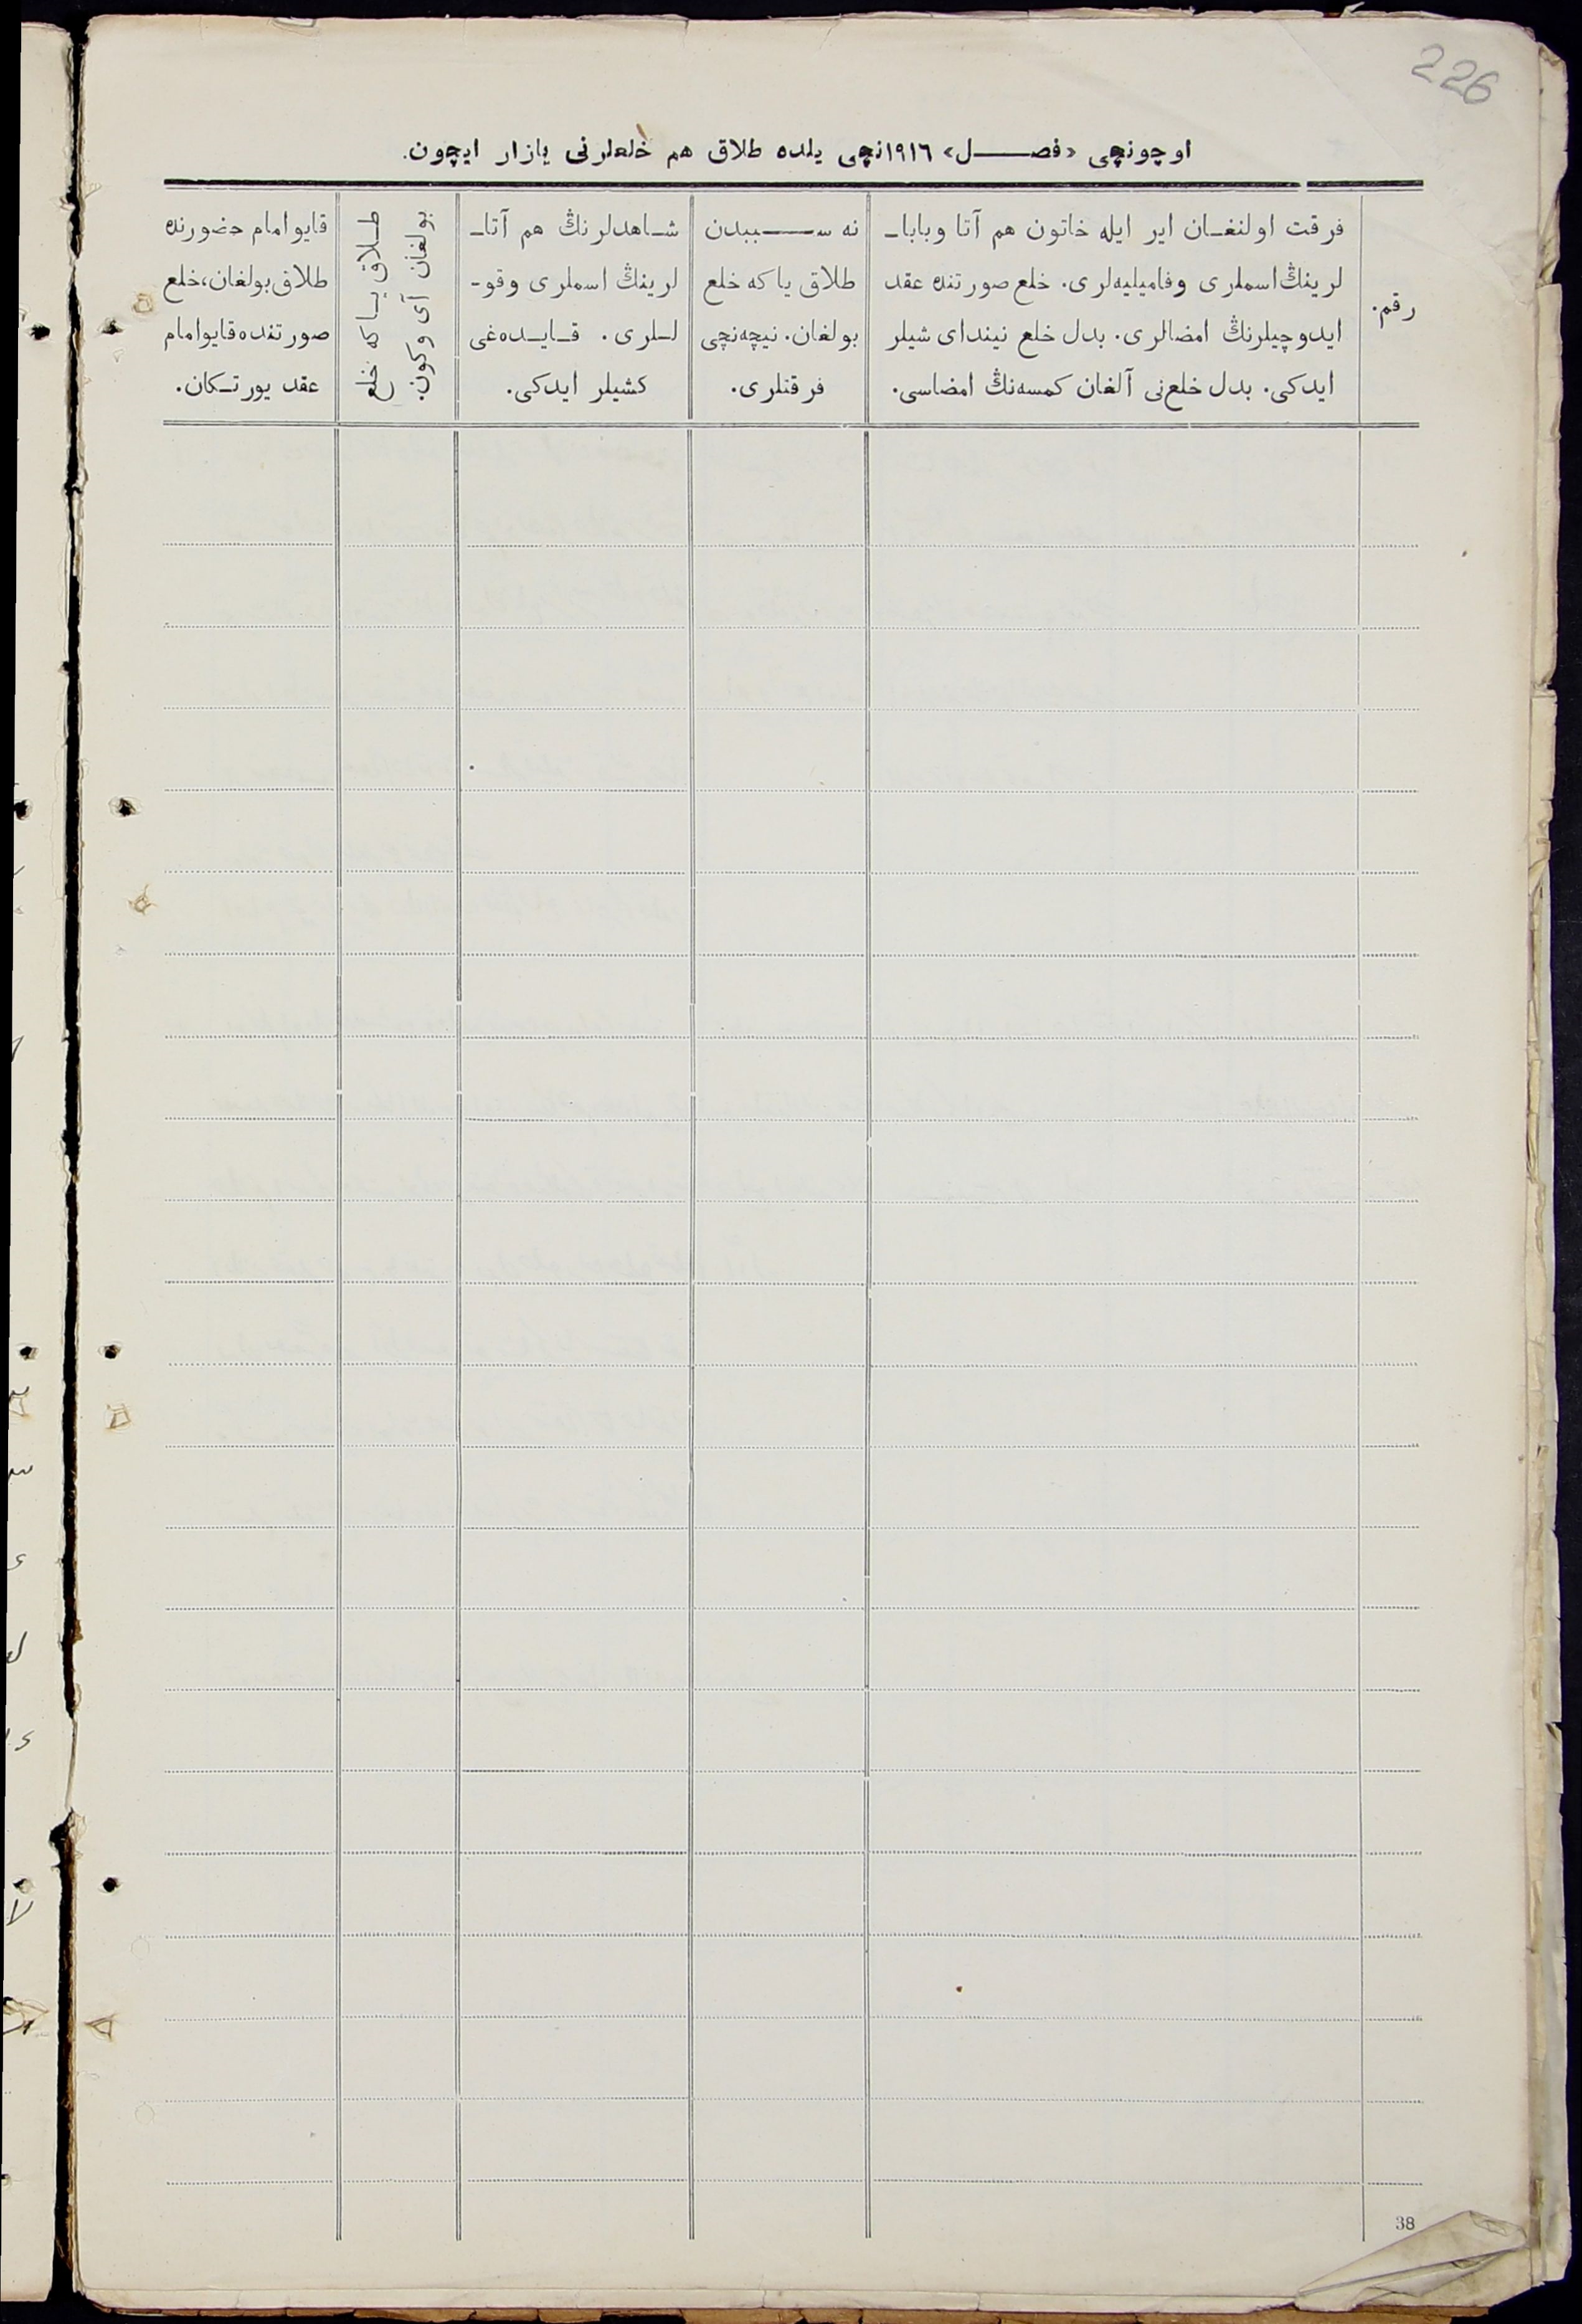 226
اوچونچی «فصـــل» ١٩١٦نچی یلده طلاق هم خلعلرنی یازار ایچون.
رقم.
فرقت اولنغـان ایر ایله خاتون هم آتا وباباـ
لرینڭ اسملری وفامیلیه‌لری. خلع صورتنده عقد
ایدوچیلرنڭ امضالری. بدل خلع نیندای شیلر
ایدکی. بدل خلع‌نی آلغان کمسه‌نڭ امضاسی.
نه ســـببدن
طلاق یا که خلع
بولغان. نیچه‌نچی
فرقتلری.
شـاهدلرنڭ هم آتاـ
لرینڭ اسملری وقو-
لـلری. قـایـده‌غی
کشیلر ایدکی.
طـلاق یـا که خلع
بولغان آی وکون.
قایو امام حضورنده
طلاق بولغان، خلع
صورتنده قایو امام
عقد یورتـکان.
38